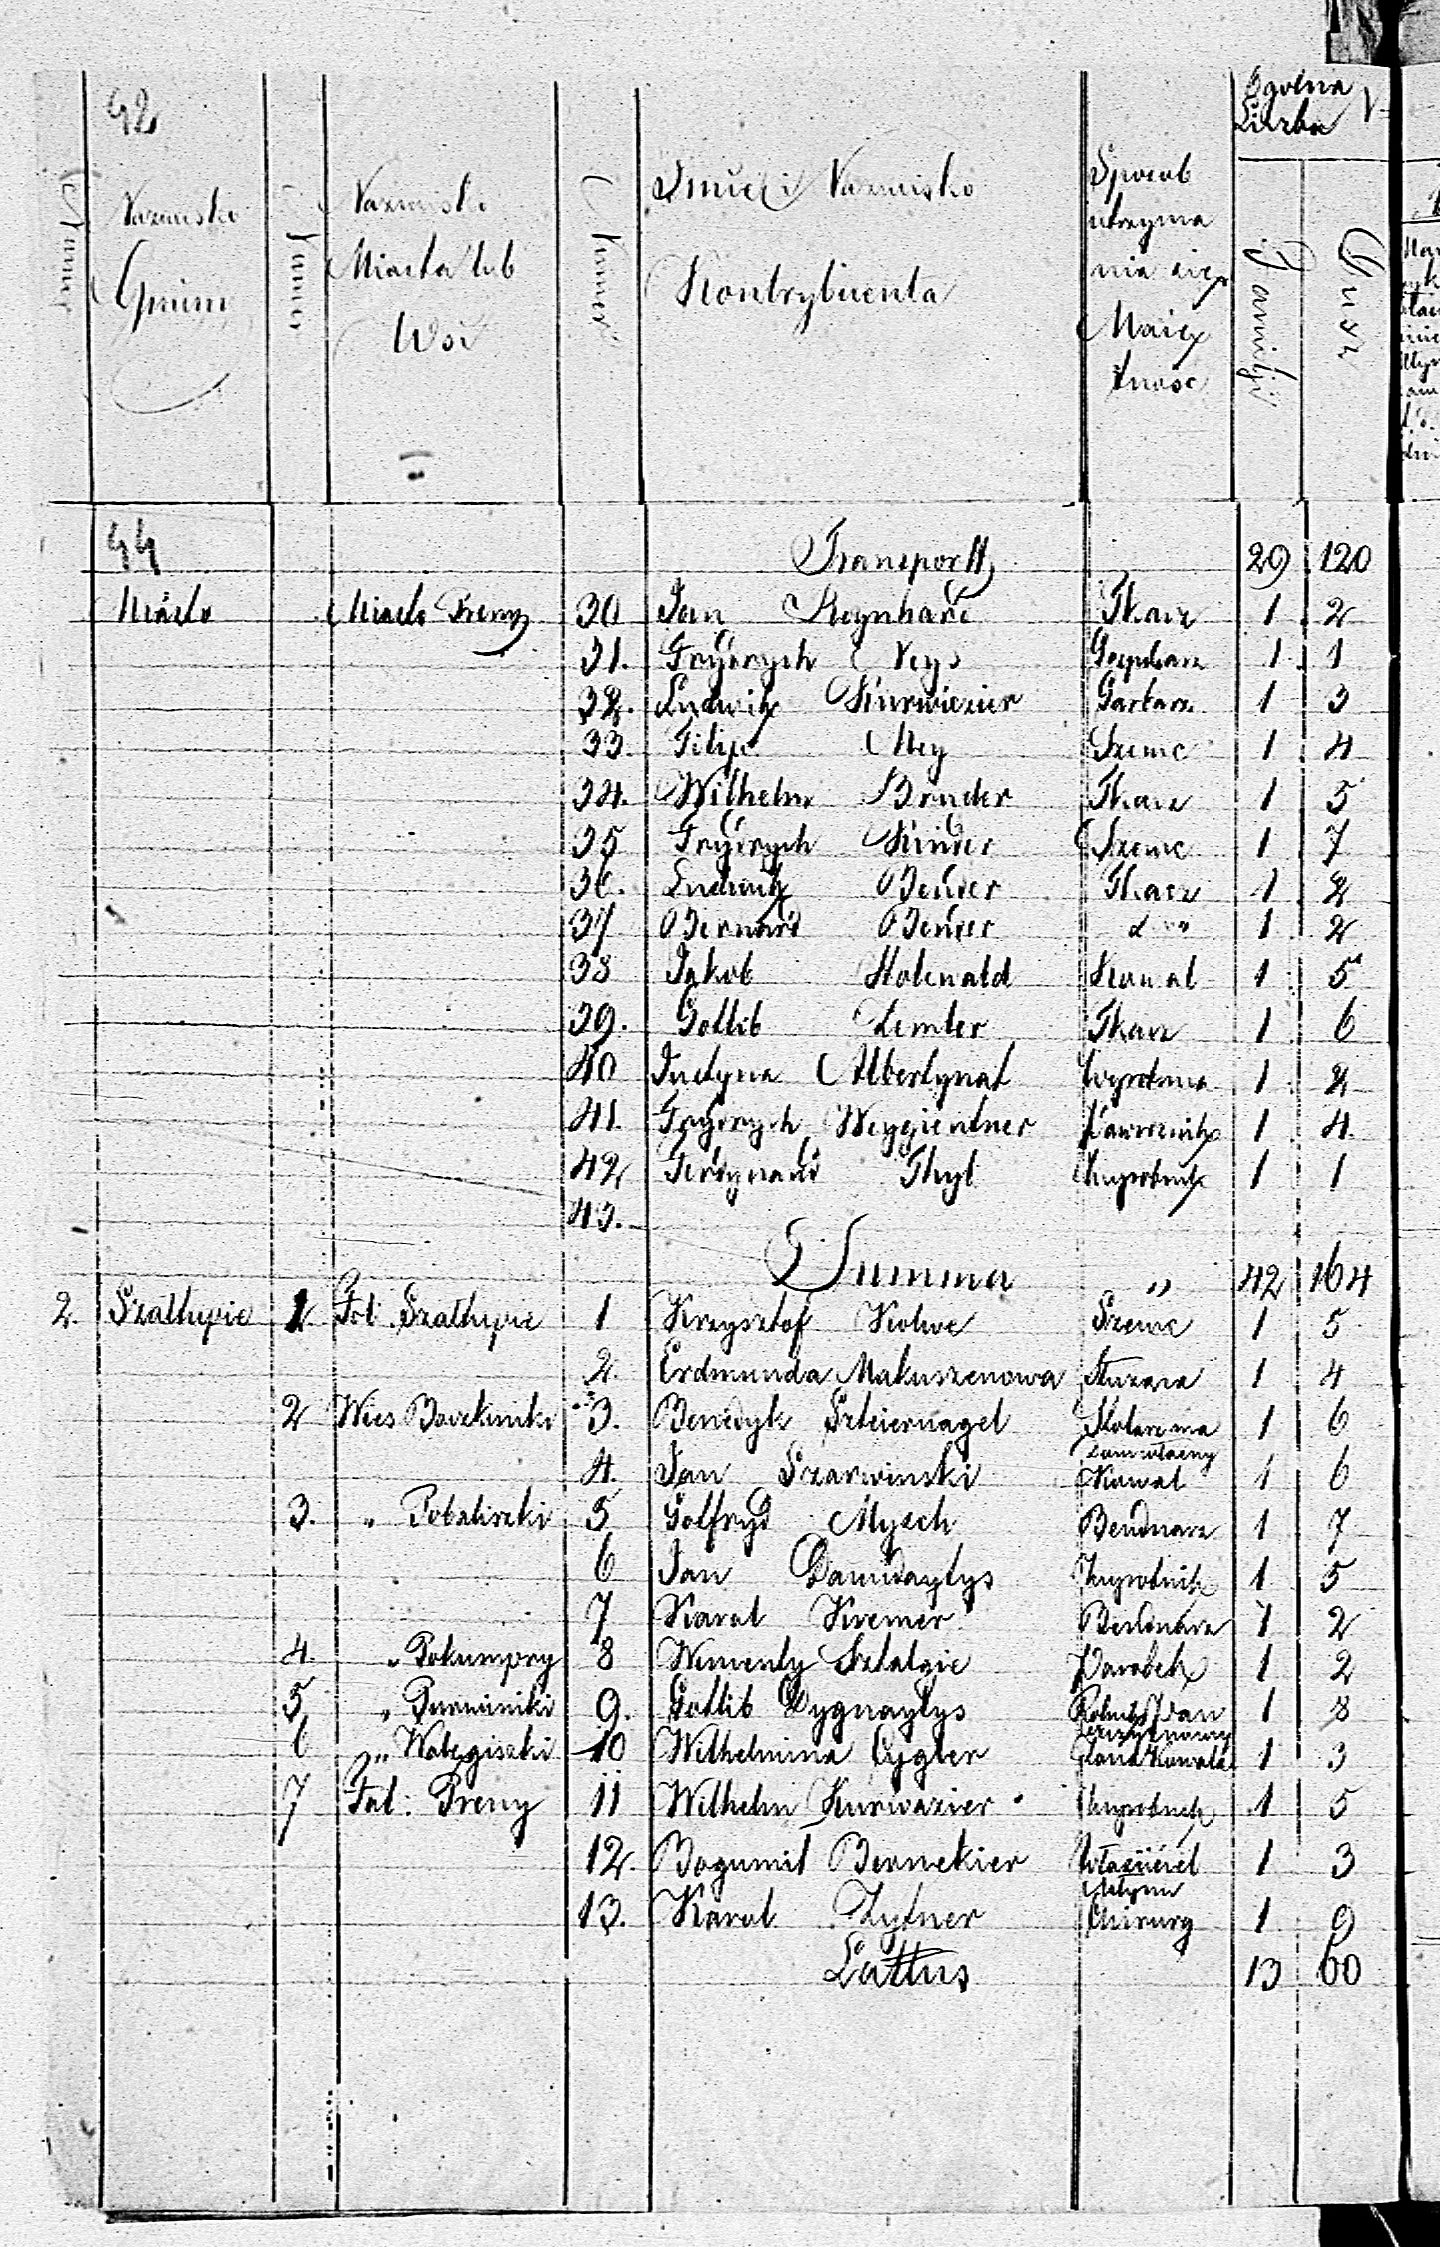 42
Ogólna Liczba
Numer
Nazwisko Gminu
Numer
Nazwisko Miasta lub Wsi
Numer
Imie i Nazwisko Kontrybuenta
Sposob utrzyma nia się Maię tnosc
Familji
Dusz
44 Transport 29 120
Miasto Miasto Preny 30 Jan Reynhard Tkacz 1 2
31. Frydrych Neys 1 1
32. Ludwik Kurwiezier Garbarz 1 3
33. Filip Mey Szewc 1 4
34. Wilhelm Bruder Tkacz 1 5
35 Frydrych Kinder Szewc 1 7
36. Ludwik Bender Tkacz 1 2
37 Bernard Bender d " 1 2
38 Jakob Holewald Kowal 1 5
39. Gottlib Lemler Tkacz 1 6
40 Justyna Albertynat Wyrobnica 1 2
41. Frydrych Weygientner 1 4
42 Ferdynand Thyl Wyrobnik 1 1
43.
Summa " 42 164
2. Szaltupie 1 Fol. Szaltupie 1 Krzysztof Kolwe Szewc 1 5
2. Erdmunda Makuszenowa 1 4
2 Wies Baczkiniki 3. Benedyk Szteiernagel 1 6
4. Jan Szarwinski Kowal 1 6
3. " Pobaliszki 5 Gotfryd Mysch Bendnarz 1 7
6 Jan Daundaytys Wyrobnik 1 5
7 Karol Kremer Bednarz 1 2
4. " Pokumpry 8 Wimenty Sztalgie Parobek 1 2
5 " Purwiniki 9. Gotlib Dygnaytys 1 8
6 " Nobęgiszki 10 Wilhelmina Cygler 1 3
7 Fol: Preny 11 Wilhelm Kurwazier Wyrobnik 1 5
12. Bogumił Bernekier Właściciel Młynu 1 3
13. Karol Zytner Chirurg 1 9
Lattus 13 60